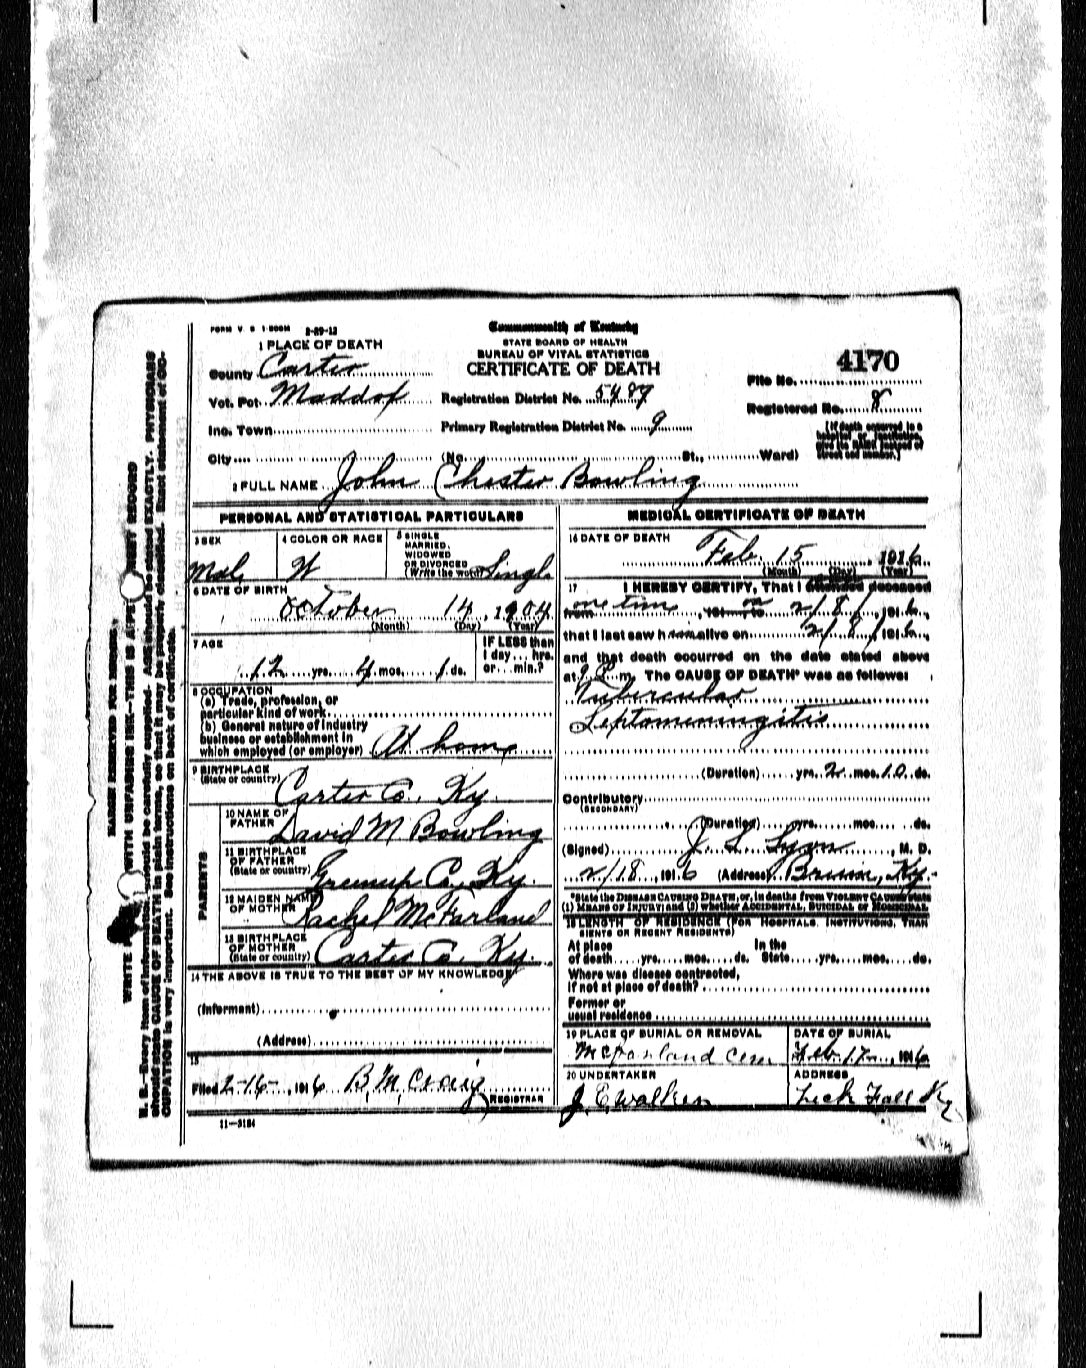 FORM V. S 1-500M 8-29-12
Commonwealth of Kentucky
STATE BOARD OF HEALTH
BUREAU OF VITAL STATISTICS
CERTIFICATE OF DEATH
1 PLACE OF DEATH
County Carter
Vot. Pct. Maddox
Inc. Town
City (No. St., Ward)
Registration District No. 5489
Primary Registration District No. 9
4170
File No.
Registered No. 8
(If death occurred in a hospital or institution, give its NAME instead of street and number.)
2 FULL NAME John Chester Bowling
PERSONAL AND STATISTICAL PARTICULARS
3 SEX Male
4 COLOR OR RACE W
5 SINGLE MARRIED, WIDOWED OR DIVORCED (Write the word) Single
6 DATE OF BIRTH October 14, 1904
(Month) (Day) (Year)
7 AGE 12 yrs. 4 mos. 1 ds.
IF LESS than 1 day... hrs. or... min.?
8 OCCUPATION
(a) Trade, profession, or particular kind of work
(b) General nature of industry business or establishment in which employed (or employer) At home
9 BIRTHPLACE (State or country) Carter Co., Ky.
PARENTS
10 NAME OF FATHER David M Bowling
11 BIRTHPLACE OF FATHER (State or country) Greenup Co, Ky.
12 MAIDEN NAME OF MOTHER Rachel McFarland
13 BIRTHPLACE OF MOTHER (State or country) Carter Co, Ky.
14 THE ABOVE IS TRUE TO THE BEST OF MY KNOWLEDGE
(Informant)
(Address)
15
Filed 2-16-, 1916 B. M. Craig REGISTRAR
11—3184
MEDICAL CERTIFICATE OF DEATH
16 DATE OF DEATH Feb. 15 1916
(Month) (Day) (Year)
17 I HEREBY CERTIFY, That I attended deceased
from one time, 191 to on 2/8/, 1916,
that I last saw him alive on 2/8/, 1916,
and that death occurred on the date stated above
at 9 P. m. The CAUSE OF DEATH* was as follows:
Tubercular
Leptomeningitis
(Duration) yrs. 2 mos. 10 ds.
Contributory (SECONDARY)
(Duration) yrs. mos. ds.
(Signed) J. L. Lyon, M. D.
2/18, 1916 (Address)
*State the DISEASE CAUSING DEATH, or, in deaths from VIOLENT CAUSES state
(1) MEANS OF INJURY; and (2) whether ACCIDENTAL, SUICIDAL or HOMICIDAL.
18 LENGTH OF RESIDENCE (FOR HOSPITALS, INSTITUTIONS, TRANSIENTS OR RECENT RESIDENTS)
At place of death yrs. mos. ds. In the State yrs. mos. ds.
Where was disease contracted, If not at place of death?
Former or usual residence
19 PLACE OF BURIAL OR REMOVAL McFarland Cem
DATE OF BURIAL Feb. 17, 1916
20 UNDERTAKER J. E. Walker
ADDRESS Lick Fall Ky
MARGIN RESERVED FOR BINDING.
N. B.—Every item of information should be carefully supplied. AGE should be stated EXACTLY. PHYSICIANS
should state CAUSE OF DEATH in plain terms, so that it may be properly classified. Exact statement of OCCUPATION is very important. See instructions on back of certificate.